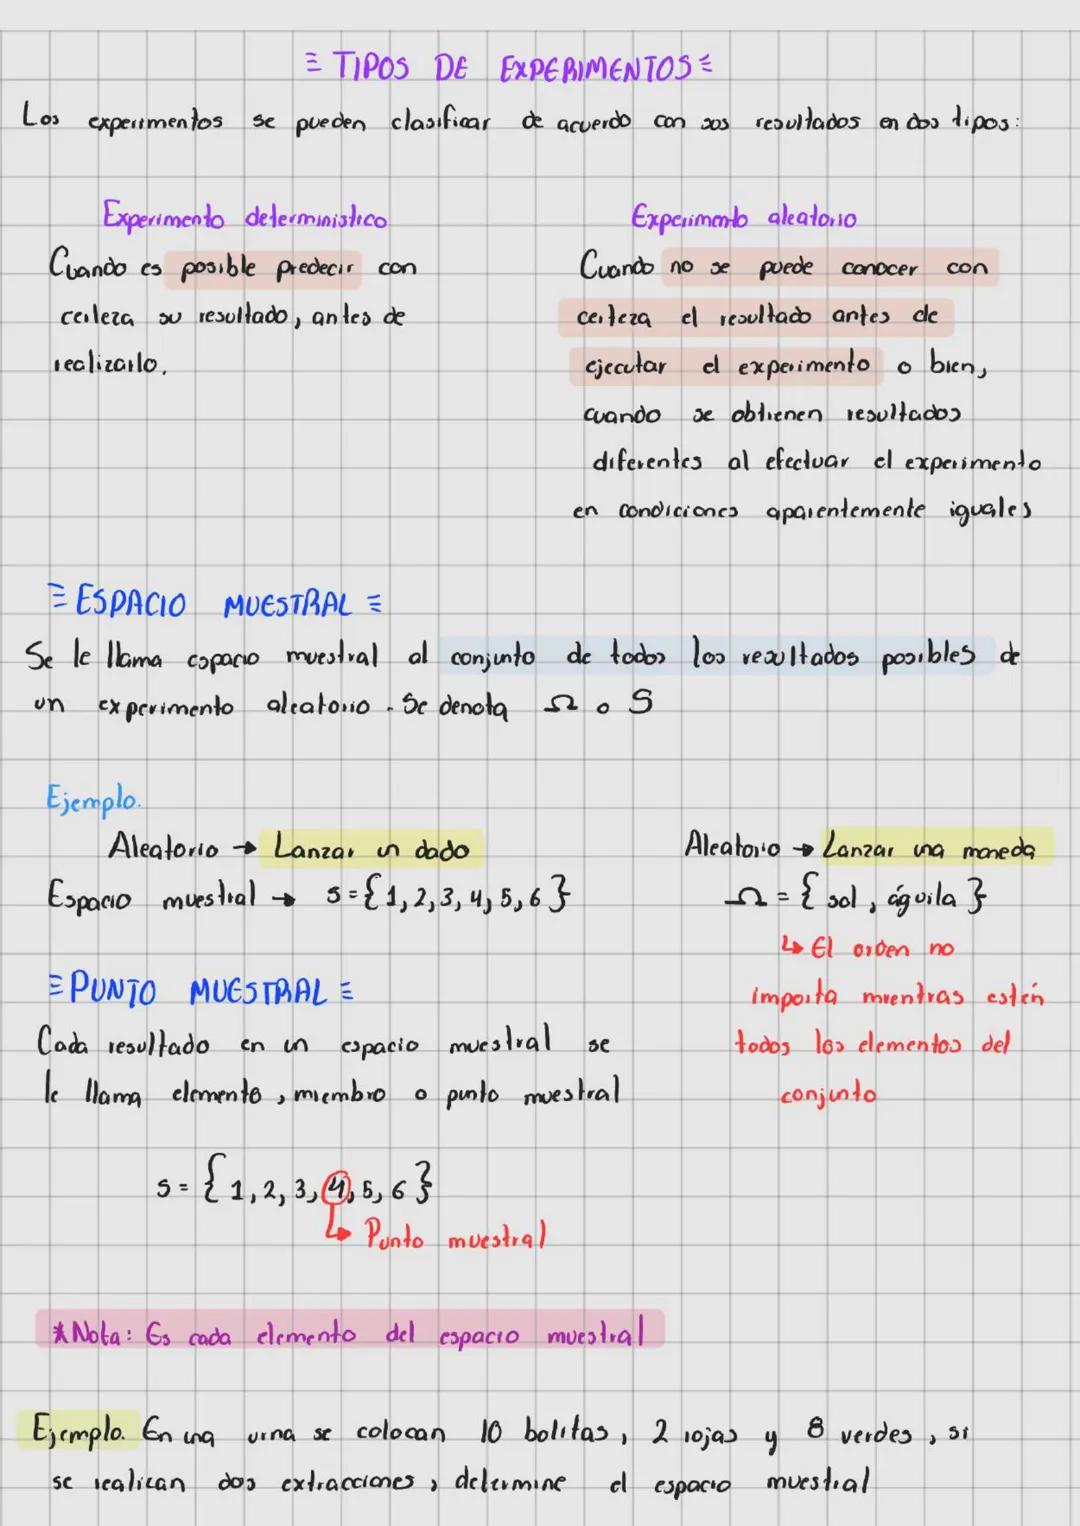 ≡ TIPOS DE EXPERIMENTOS ≡
Los experimentos se pueden clasificar de acuerdo con sus resultados en dos tipos:
Experimento deterministico
Cuando es posible predecir con
certeza su resultado, antes de
realizarlo.
Experimento aleatorio
Cuando no se puede conocer con
certeza el resultado antes de
ejecutar el experimento o bien,
cuando se obtienen resultados
diferentes al efectuar el experimento
en condiciones aparentemente iguales
≡ ESPACIO MUESTRAL ≡
Se le llama espacio muestral al conjunto de todos los resultados posibles de
un experimento aleatorio. Se denota Ω o S
Ejemplo.
Aleatorio → Lanzar un dado
Espacio muestral → s={1,2,3,4,5,6}
Aleatorio → Lanzar una moneda
Ω = { sol, águila }
↳ El orden no
importa mientras estén
todos los elementos del
conjunto
≡ PUNTO MUESTRAL ≡
Cada resultado en un espacio muestral se
le llama elemento, miembro o punto muestral
s = { 1, 2, 3, 4, 5, 6 }
↳ Punto muestral
*Nota: Es cada elemento del espacio muestral
Ejemplo. En una urna se colocan 10 bolitas, 2 rojas y 8 verdes, si
se realizan dos extracciones, determine el espacio muestral